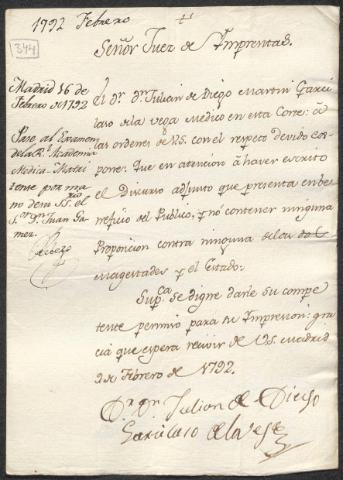 1792 Febrero
344
Señor Juez de Imprentas.
Madrid 16 de
Febrero de 1792
Pase al Examen
de la Rl. Academia
Medica Matri
tense por ma
no de su Srio. el
Sor. Dn. Juan Ga
mez.
El Dr. Dn. Julian de Diego Martin Garci
laso de la Vega Medico en esta Corte: â
las ordenes de VS. con el respeto devido es
pone: Que en atencion â haver escrito
el Discurso adjunto que presenta en be
neficio del Publico, y no contener ninguna
Proposicion contra ninguna de las dos
Magestades y el Estado:
Supca. se digne darle su compe
tente permiso para su Impresion: gra
cia que espera recivir de VS. Madrid
9 de Febrero de 1792.
Dr. Dn. Julian de Diego
Garcilaso de la Vega